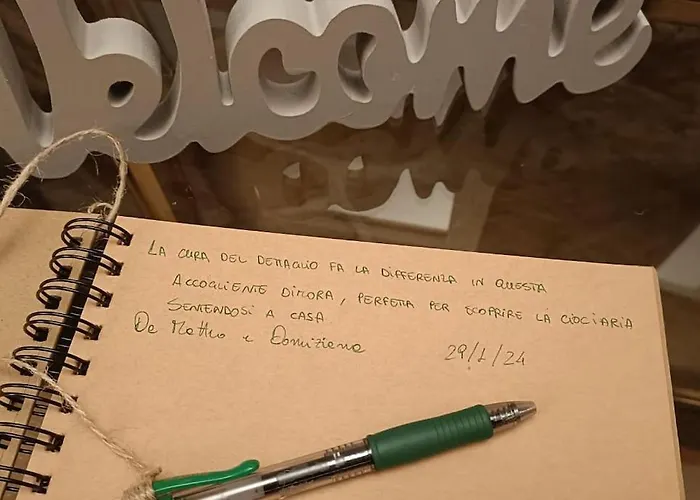 Welcome
LA CURA DEL DETTAGLIO FA LA DIFFERENZA IN QUESTA
ACCOGLIENTE DIMORA, PERFETTA PER SCOPRIRE LA CIOCIARIA
SENTENDOSI A CASA
Da Matteo e Domiziana 29/1/24